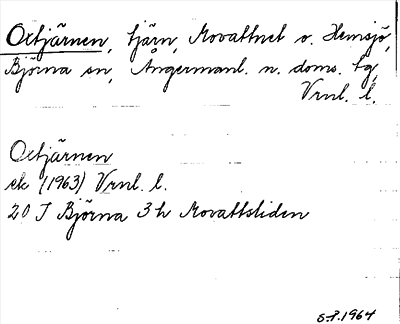 Ortjärnen, tjärn, Movattnet o. Hemsjö,
Björna sn, Ångermanl. n. doms. tg,
Vrnl. l.
Ortjärnen
ek (1963) Vrnl. l.
20 I Björna 3 h Movattsliden
S.P. 1964